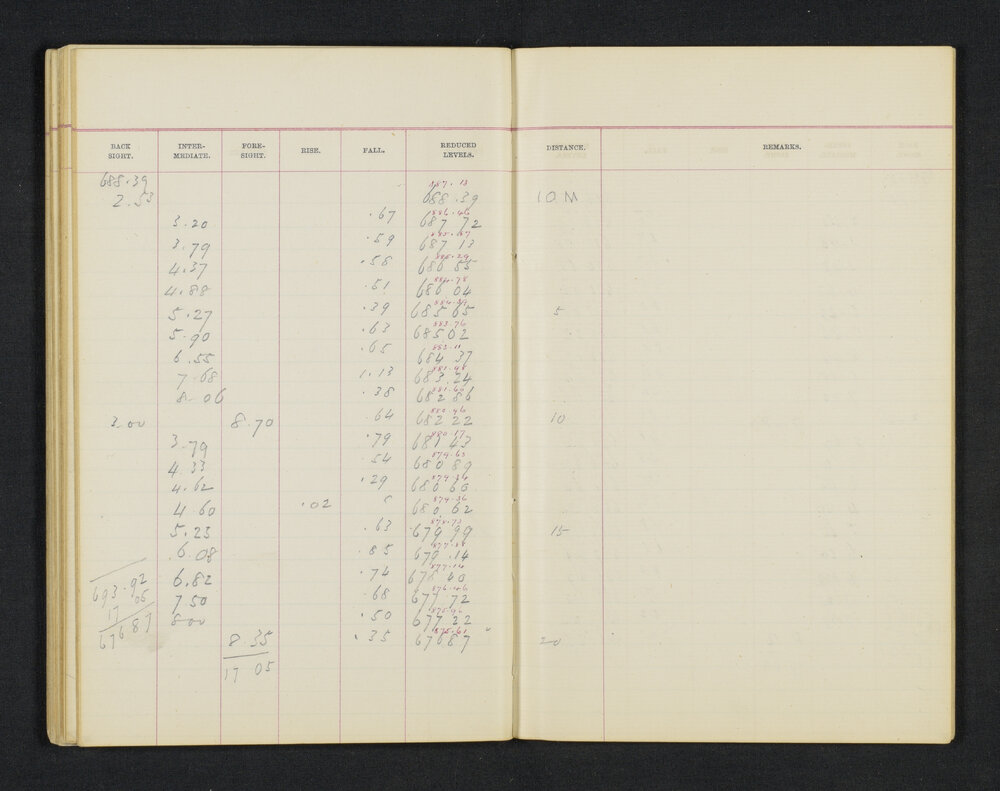 BACK SIGHT. INTER-MEDIATE. FORE-SIGHT. RISE. FALL. REDUCED LEVELS. DISTANCE. REMARKS.
688.39 887.13
2.53 688.39 10 M
886.46
3.20 .67 687 72
3.79 .59 687 13
885.29
4.37 .58 686 55
884.78
4.88 .51 686 04
884.39
5.27 .39 685 65 5
883.76
5.90 .63 685 02
883.11
6.55 .65 684 37
7.68 1.13 683.24
881.60
8.06 .38 682 86
3.00 8.70 .64 682 22 10
880.17
3.79 .79 681 43
879.63
4.33 .54 680 89
4.62 .29 680 60
879.36
4.60 .02 680.62
878.73
5.23 .63 679 99 15
6.08 .85 679.14
877.14
6.82 .74 678 40
693.92 876.46
7.50 .68 677 72
17 05
8.00 .50 677 22
676 87 875.61
8.35 .35 676 87 20
17 05